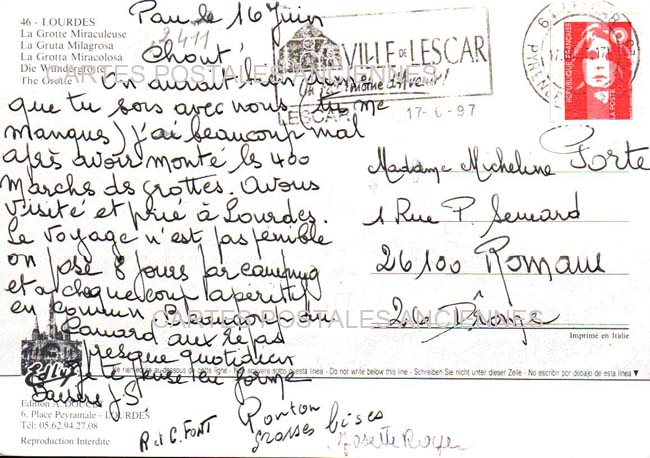 46 - LOURDES
La Grotte Miraculeuse
La Gruta Milagrosa
La Grotta Miracolosa
Die Wundergrotte
The Grotte
2411
Pau le 16 Juin
Chout'
On aurait bien aimé
que tu sois avec nous (tu me
manques) j'ai beaucoup mal
après avoir monté les 400
marchs des grottes. Avons
visité et prié à Lourdes.
Le voyage n'est pas pénible
on pose 8 jours par camping
et a chaque coup l'apéritif
en commun. Beaucoup du
Canard aux repas
presque quotidien
Je te pense en forme
Baisers J.S.
R et G. FONT
Ponton
grosses bises
Josette Royer
VILLE DE LESCAR
LESCAR
17-6-97
PYRENEES
REPUBLIQUE FRANÇAISE
LA POSTE
Madame Micheline Porte
1 Rue P. Semard
26100 Romans
26 Drôme
CARTES POSTALES ANCIENNES
CARTES POSTALES ANCIENNES
Imprimé en Italie
Ne rien écrire au-dessous de cette ligne - Non scrivere sotto questa linea - Do not write below this line - Schreiben Sie nicht unter dieser Zeile - No escribir por debajo de esta linea ▼
Edition A. DOUCET
6, Place Peyramale - LOURDES
Tél: 05.62.94.27.08
Reproduction Interdite